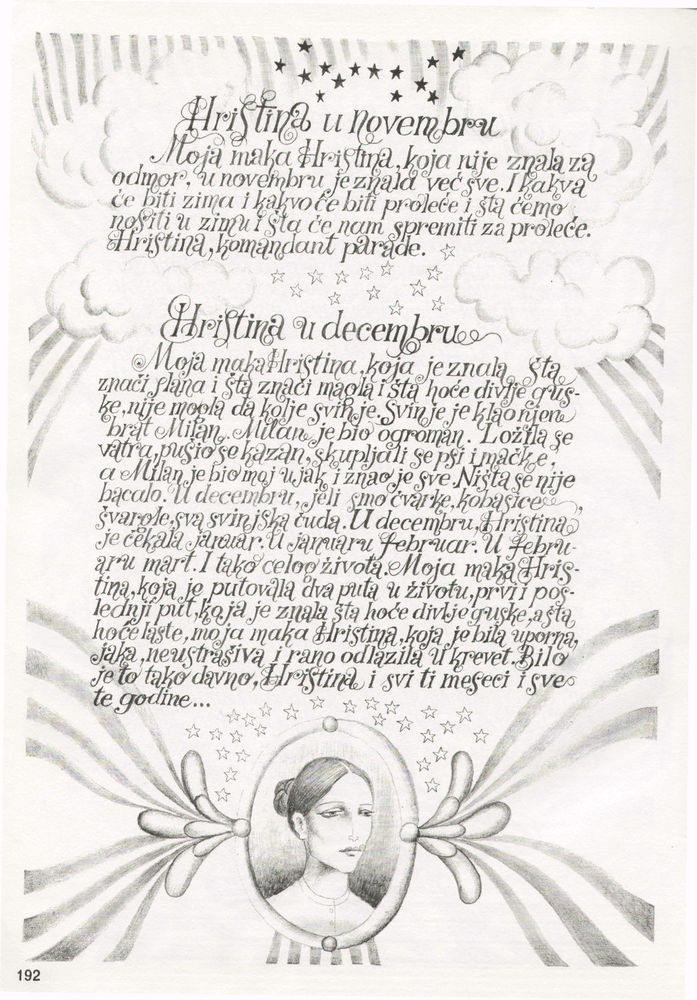 Hristina u novembru
Moja maka Hristina, koja nije znala za
odmor, u novembru je znala već sve. I kakva
će biti zima i kakvo će biti proleće i šta ćemo
nositi u zimu i šta će nam spremiti za proleće.
Hristina, komandant parade.
Hristina u decembru
Moja maka Hristina, koja je znala šta
znači slana i šta znači magla i šta hoće divlje gus-
ke, nije mogla da kolje svinje. Svinje je klao njen
brat Milan. Milan je bio ogroman. Ložila se
vatra, pušio se kazan, skupljali se psi i mačke,
a Milan je bio moj ujak i znao je sve. Ništa se nije
bacalo. U decembru, jeli smo čvarke, kobasice,
švargle, sva svinjska čuda. U decembru, Hristina
je čekala januar. U januaru februar. U febru-
aru mart. I tako celog života. Moja maka Hris-
tina, koja je putovala dva puta u životu, prvi i pos-
lednji put, koja je znala šta hoće divlje guske, a šta
hoće laste, moja maka Hristina, koja je bila uporna,
jaka, neustrašiva i rano odlazila u krevet. Bilo
je to tako davno, Hristina, i svi ti meseci i sve
te godine...
192